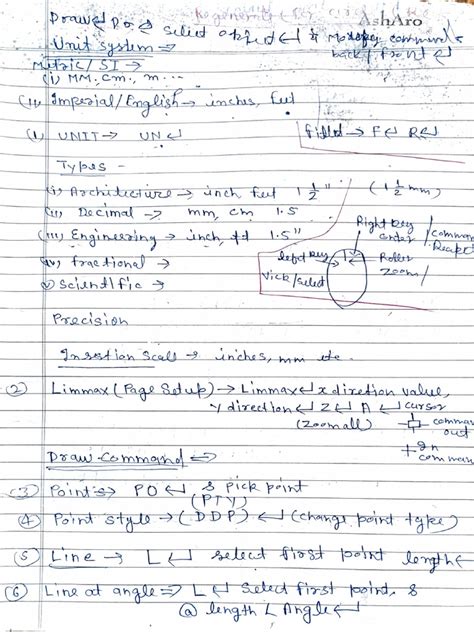 AshAro
Draw↵ Do ↵ select object↵ & Modify command
Unit system → back / front ↵
Metric / SI →
(i) MM, Cm, m...
(ii) Imperial/English → inches, feet
(1) UNIT → UN↵ fillet → F↵ R↵
Types -
(i) Architecture → inch feet 1 1/2" (1 1/2 mm)
(ii) Decimal → mm, cm 1.5
(iii) Engineering → inch, ft 1.5"
Right key enter / command
left key Roller
Zoom/
(iv) fractional →
(v) Scientific →
Precision
Insertion Scall → inches, mm etc.
(2) Limmax (Page Setup) → Limmax↵ x diretion value,
y direction ↵ Z↵ A ↵ cursor
(Zoomall) comman out
+ In comman
Draw-Command ⇒
(3) Point → PO ↵ & pick point
(PTY)
(4) Point style → (DDP) ↵ (change point type)
(5) Line → L↵ select first point length↵
(6) Line at angle ⇒ L↵ Select first point, &
@ length ∠ Angle↵